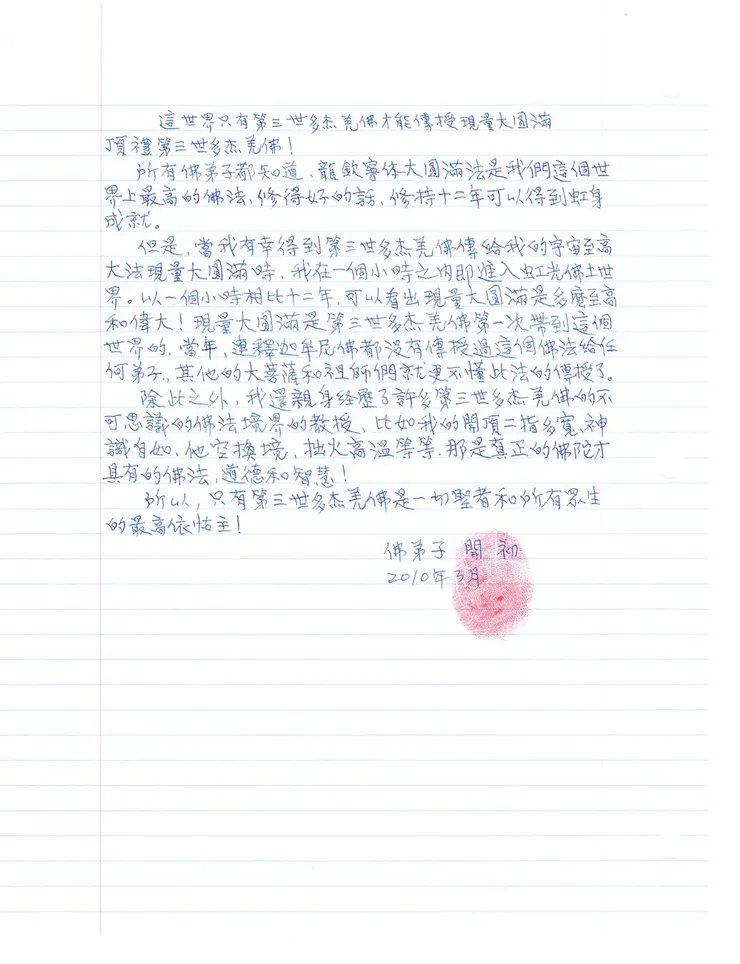 這世界只有第三世多杰羌佛才能傳授現量大圓滿
頂禮第三世多杰羌佛!
所有佛弟子都知道,龍欽寧体大圓滿法是我們這個世
界上最高的佛法,修得好的話,修持十二年可以得到虹身
成就。
但是,當我有幸得到第三世多杰羌佛傳給我的宇宙至高
大法現量大圓滿時,我在一個小時之內即進入虹光佛土世
界。以一個小時相比十二年,可以看出現量大圓滿是多麼至高
和偉大!現量大圓滿是第三世多杰羌佛第一次帶到這個
世界的,當年,連釋迦牟尼佛都沒有傳授過這個佛法給任
何弟子,其他的大菩薩和祖師們就更不懂此法的傳授了。
除此之外,我還親身经歷了許多第三世多杰羌佛的不
可思議的佛法境界的教授,比如我的開頂二指多寬、神
識自如、他空換境、拙火高溫等等,那是真正的佛陀才
具有的佛法,道德和智慧!
所以,只有第三世多杰羌佛是一切聖者和所有眾生
的最高依怙主!
佛弟子 開初
2010年3月